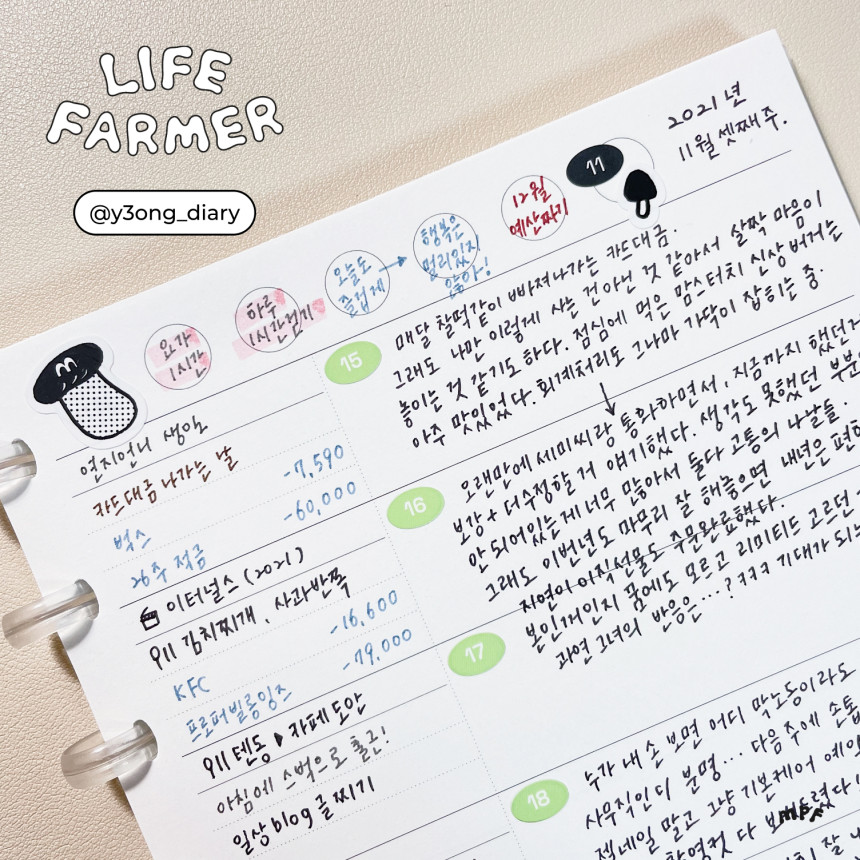 LIFE
FARMER
@y3ong_diary
2021년
11월 셋째주.
11
12월
예산짜기
행복은
멀리있지
않아!
오늘도
즐겁게
하루
1시간걷기
요가
1시간
연지언니 생일
카드대금 나가는 날
벅스 -7,590
26주 적금 -60,000
이터널스 (2021)
워니 김치찌개, 사과반쪽
KFC -16,600
프로퍼빌롱잉즈 -79,000
워니 텐동 ▶ 자페 도안
아침에 스벅으로 출근!
일상 blog 글 찌기
15
매달 찰떡같이 빠져나가는 카드대금.
그래도 나만 이렇게 사는 건 아닌 것 같아서 살짝 마음이
놓이는 것 같기도 하다. 점심에 먹은 맘스터치 신상 버거는
아주 맛있었다. 회계처리도 그나마 가닥이 잡히는 중.
16
오랜만에 세미씨랑 통화하면서, 지금까지 했던
보강 + 더 수정할 거 얘기했다. 생각도 못했던 부분
안 되어있는게 너무 많아서 둘다 고통의 나날들.
그래도 이번년도 마무리 잘 해놓으면 내년은 편
지연이 아직선물도 주문완료했다.
본인꺼인지 꿈에도 모르고 리미티드 고르던
과연 그녀의 반응은...? ㅋㅋㅋ 기대가 되
17
18
누가 내 손 보면 어디 막노동이라도
사무직인 디 분명... 다음주에 소톱
젤네일 말고 그냥 기본케어 예
다
MPF